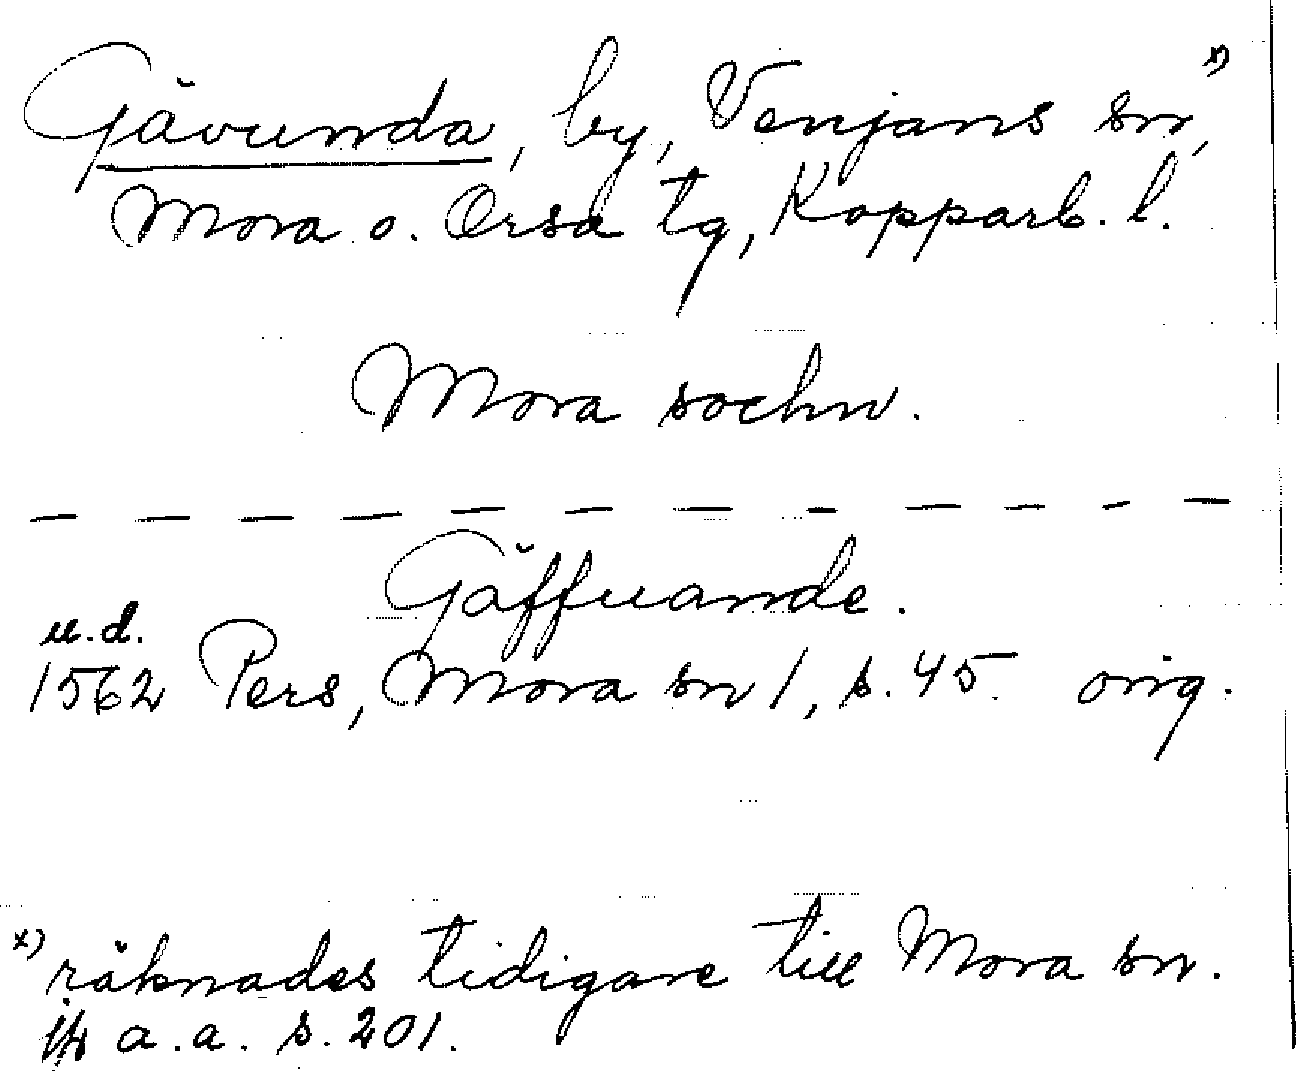 Gävunda, by, Venjans sn, x)
Mora o. Orsa tg, Kopparb. l.
Mora sochn.
— — — — — — — — — — — —
Gäffuande.
u.d.
1562 Pers, Mora sn 1, s. 45. orig.
x) räknades tidigare till Mora sn.
jfr a.a. s. 201.